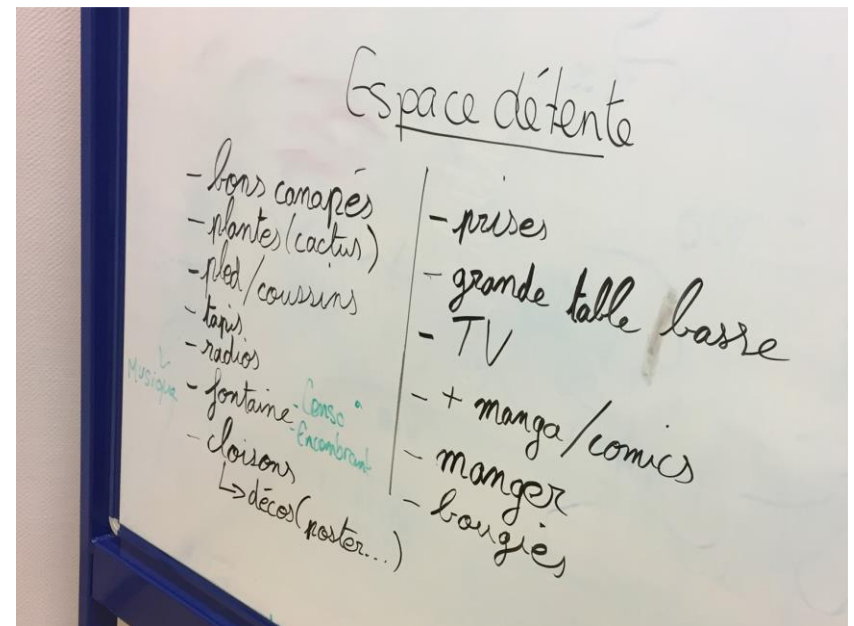 Espace détente
- bons canapés
- plantes (cactus)
- pled/coussins
- tapis
- radios
Musique
- fontaine
- Conso
- Encombrant
- cloisons
↳ décos (poster...)
- prises
- grande table basse
- TV
- + manga/comics
- manger
- bougies